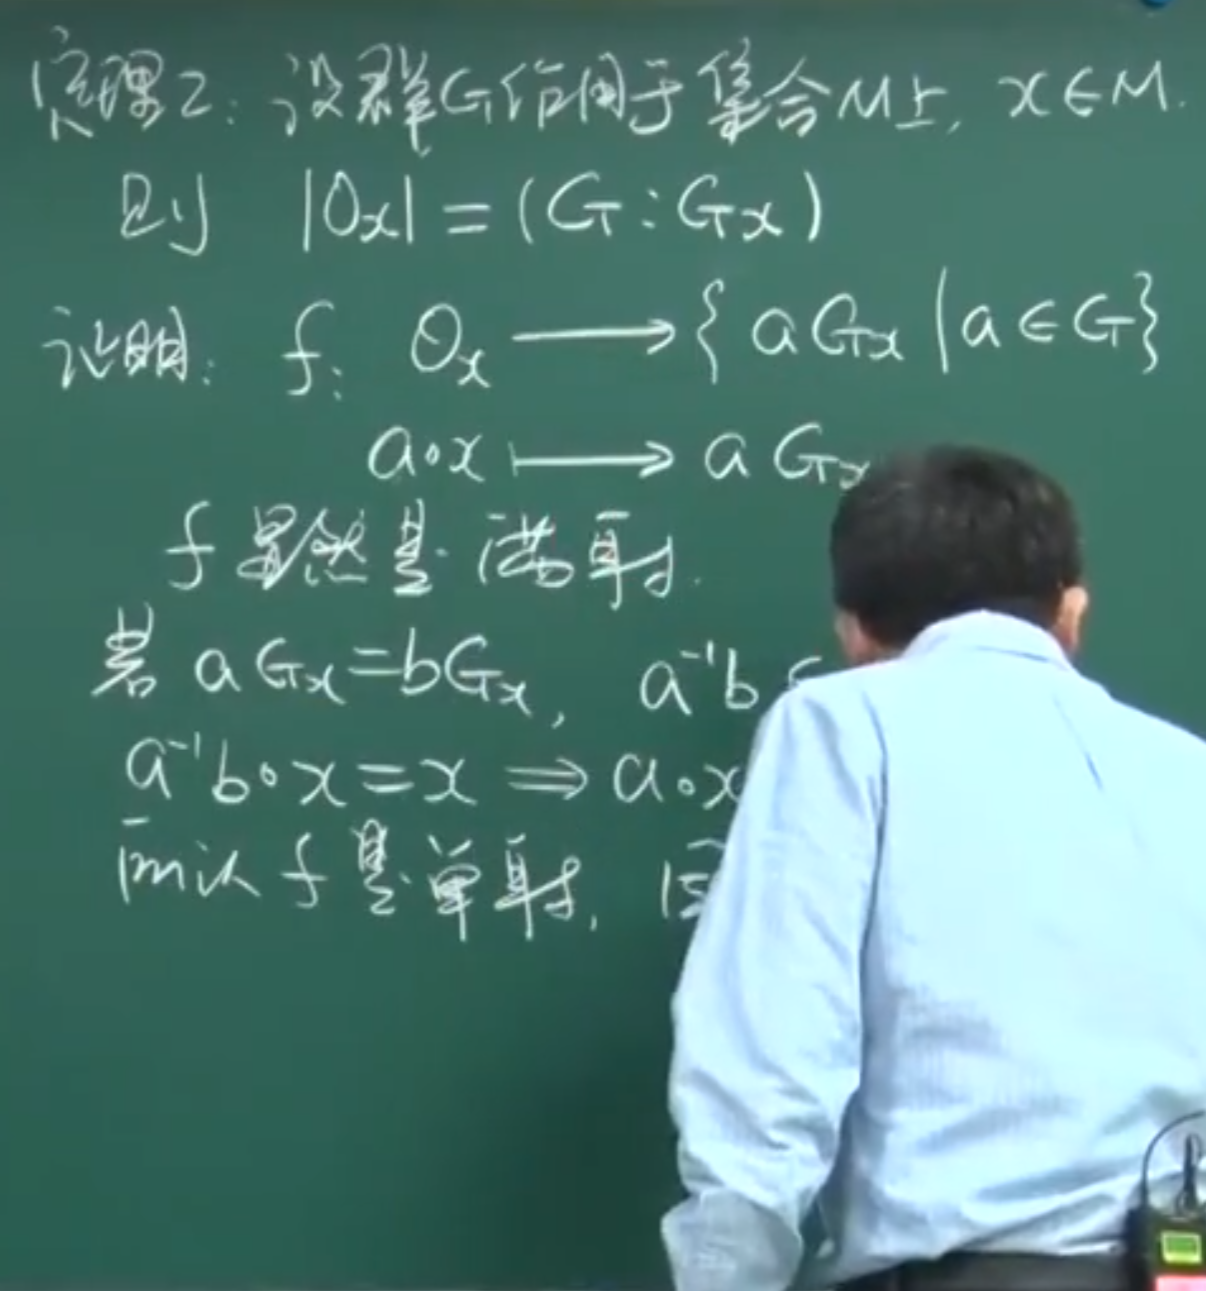 定理2：设群G作用于集合M上, x∈M.
则 |Ox| = (G : Gx)
证明： f: Ox ⟶ { aGx | a∈G}
a∘x ⟼ a Gx
f 显然是满射.
若 aGx=bGx, a⁻¹b
a⁻¹b∘x = x ⇒ a∘x
所以 f 是单射,